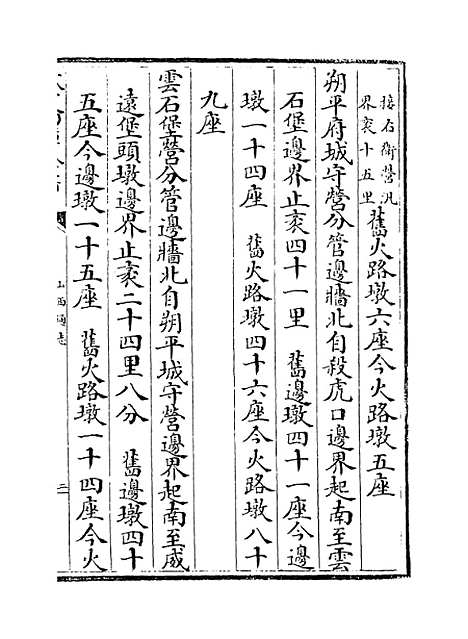 接右衛營汛
界袤十五里
舊火路墩六座今火路墩五座
朔平府城守營分管邊牆北自殺虎口邊界起南至雲
石堡邊界止袤四十一里　舊邊墩四十一座今邊
墩一十四座　舊火路墩四十六座今火路墩八十
九座
雲石堡營分管邊牆北自朔平城守營邊界起南至威
遠堡頭墩邊界止袤二十四里八分　舊邊墩四十
五座今邊墩一十五座　舊火路墩一十四座今火
山西通志
三